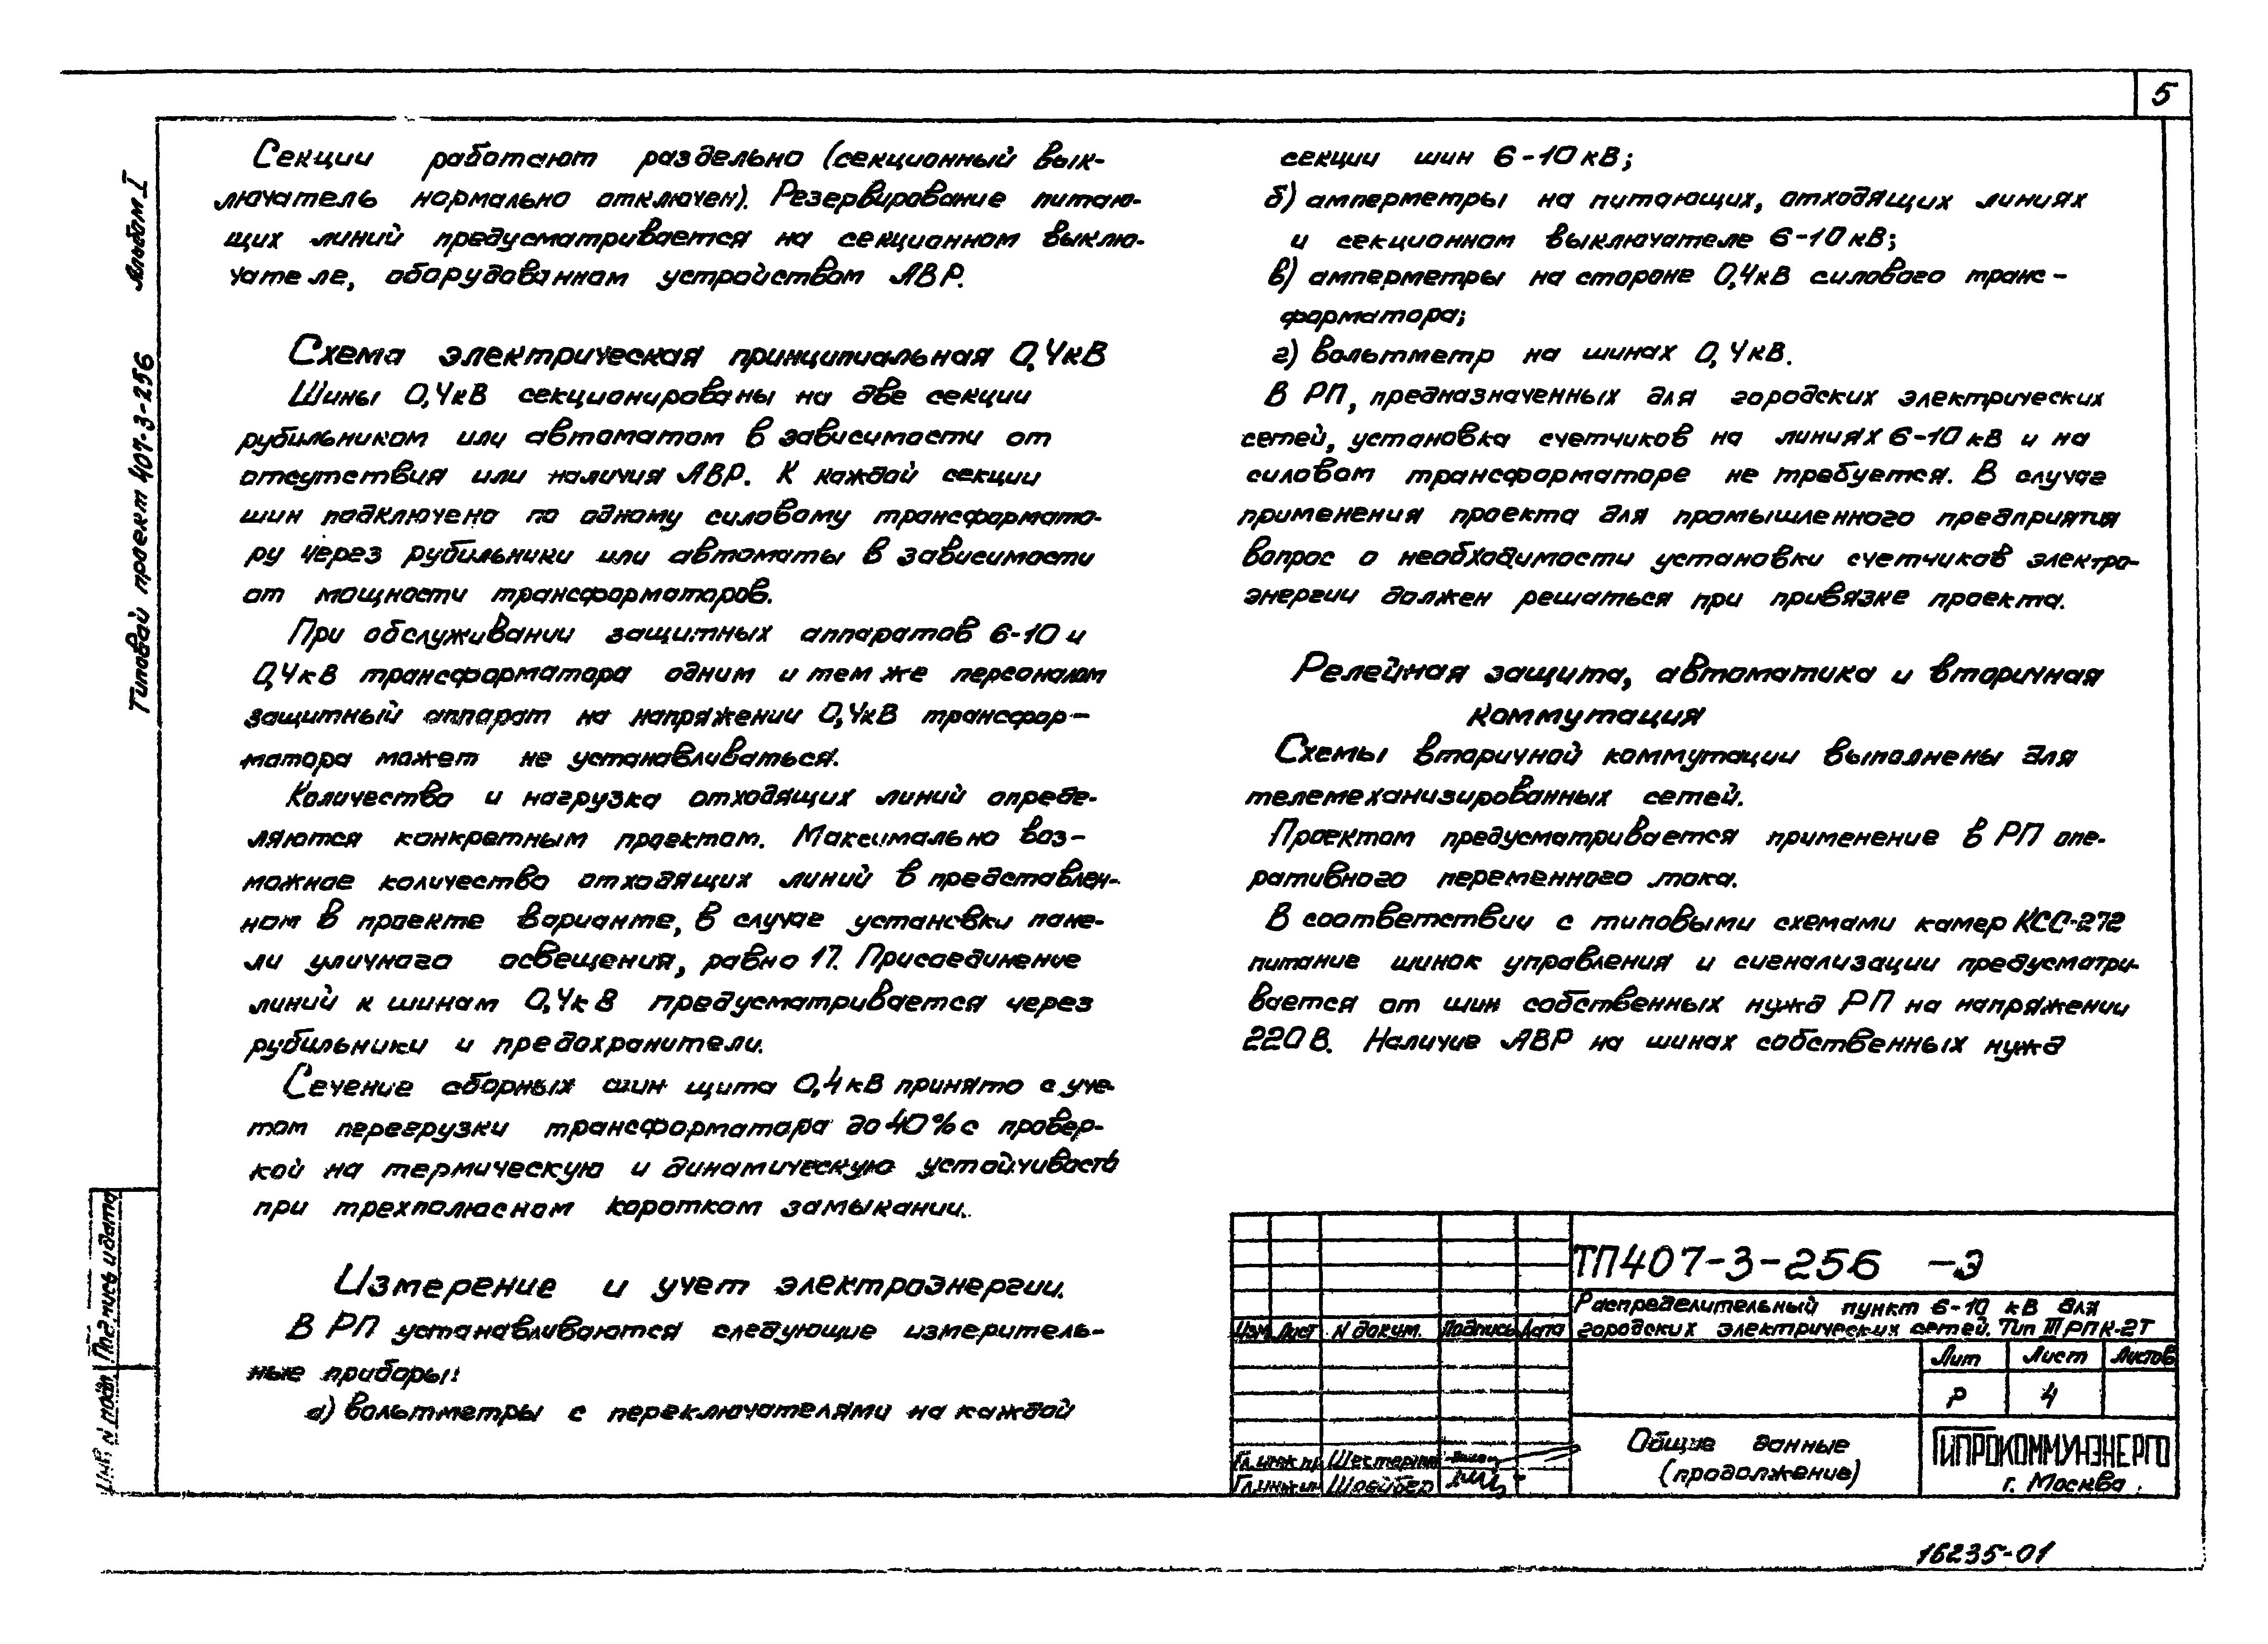 5
Альбом I
Типовой проект 407-3-256
Секции работают раздельно (секционный вык-
лючатель нормально отключен). Резервирование питаю-
щих линий предусматривается на секционном выклю-
чателе, оборудованном устройством АВР.
Схема электрическая принципиальная 0,4кВ
Шины 0,4кВ секционированы на две секции
рубильником или автоматом в зависимости от
отсутствия или наличия АВР. К каждой секции
шин подключено по одному силовому трансформато-
ру через рубильники или автоматы в зависимости
от мощности трансформаторов.
При обслуживании защитных аппаратов 6-10 и
0,4кВ трансформатора одним и тем же персоналом
защитный аппарат на напряжении 0,4кВ трансфор-
матора может не устанавливаться.
Количество и нагрузка отходящих линий опреде-
ляются конкретным проектом. Максимально воз-
можное количество отходящих линий в представлен-
ном в проекте варианте, в случае установки пане-
ли уличного освещения, равно 17. Присоединение
линий к шинам 0,4кВ предусматривается через
рубильники и предохранители.
Сечение сборных шин щита 0,4кВ принято с уче-
том перегрузки трансформатора до 40% с провер-
кой на термическую и динамическую устойчивость
при трехполюсном коротком замыкании.
Измерение и учет электроэнергии.
В РП устанавливаются следующие измеритель-
ные приборы:
а) вольтметры с переключателями на каждой
секции шин 6-10кВ;
б) амперметры на питающих, отходящих линиях
и секционном выключателе 6-10кВ;
в) амперметры на стороне 0,4кВ силового транс-
форматора;
г) вольтметр на шинах 0,4кВ.
В РП, предназначенных для городских электрических
сетей, установка счетчиков на линиях 6-10кВ и на
силовом трансформаторе не требуется. В случае
применения проекта для промышленного предприятия
вопрос о необходимости установки счетчиков электро-
энергии должен решаться при привязке проекта.
Релейная защита, автоматика и вторичная
коммутация
Схемы вторичной коммутации выполнены для
телемеханизированных сетей.
Проектом предусматривается применение в РП опе-
ративного переменного тока.
В соответствии с типовыми схемами камер КСО-272
питание шинок управления и сигнализации предусматри-
вается от шин собственных нужд РП на напряжении
220В. Наличие АВР на шинах собственных нужд
ТП407-3-256 -Э
Распределительный пункт 6-10 кВ для
городских электрических сетей. Тип III РПК-2Т
Изм Лист N докум. Подпись Дата
Лит Лист Листов
Р 4
Общие данные
(продолжение)
ГИПРОКОММУНЭНЕРГО
г. Москва
Гл.инж.пр.
Гл.инж.ин Шрейбер
Инв. N подл. Подпись и дата
16235-01